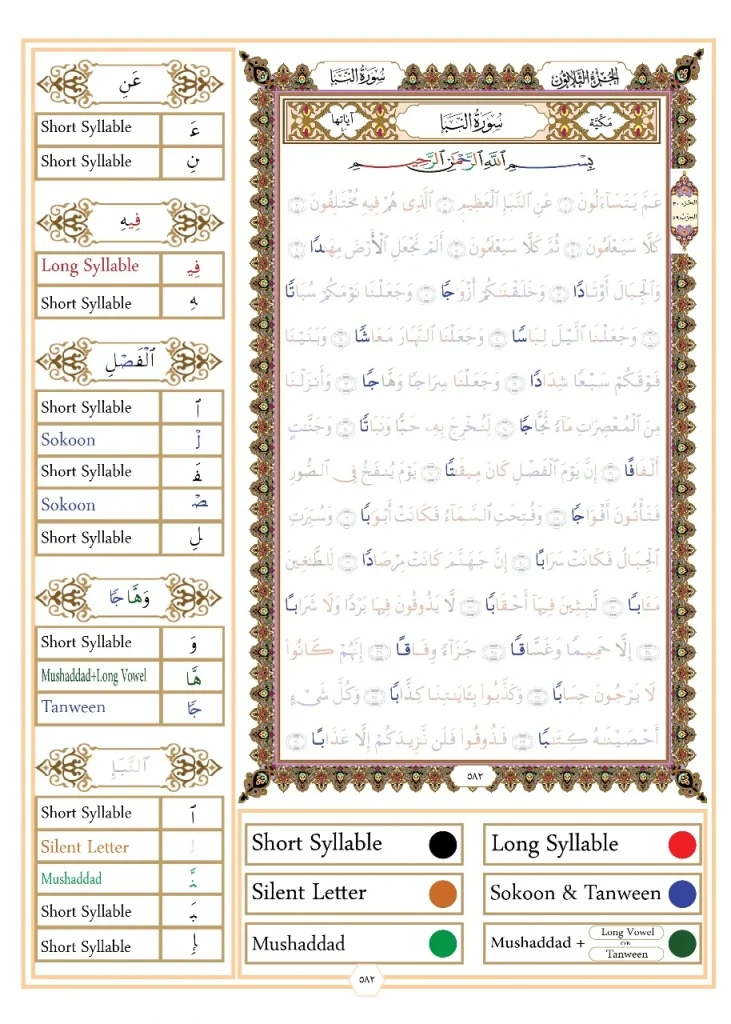 سُورَةُ النَّبَإِ
الجُزْءُ الثَّلَاثُونَ
مَكِّيَّة
سُورَةُ النَّبَإِ
آيَاتُهَا
بِسْمِ ٱللَّهِ ٱلرَّحْمَٰنِ ٱلرَّحِيمِ
عَمَّ يَتَسَآءَلُونَ عَنِ ٱلنَّبَإِ ٱلْعَظِيمِ ٱلَّذِى هُمْ فِيهِ مُخْتَلِفُونَ
كَلَّا سَيَعْلَمُونَ ثُمَّ كَلَّا سَيَعْلَمُونَ أَلَمْ نَجْعَلِ ٱلْأَرْضَ مِهَٰدًا
وَٱلْجِبَالَ أَوْتَادًا وَخَلَقْنَٰكُمْ أَزْوَٰجًا وَجَعَلْنَا نَوْمَكُمْ سُبَاتًا
وَجَعَلْنَا ٱلَّيْلَ لِبَاسًا وَجَعَلْنَا ٱلنَّهَارَ مَعَاشًا وَبَنَيْنَا
فَوْقَكُمْ سَبْعًا شِدَادًا وَجَعَلْنَا سِرَاجًا وَهَّاجًا وَأَنزَلْنَا
مِنَ ٱلْمُعْصِرَٰتِ مَآءً ثَجَّاجًا لِّنُخْرِجَ بِهِۦ حَبًّا وَنَبَاتًا وَجَنَّٰتٍ
أَلْفَافًا إِنَّ يَوْمَ ٱلْفَصْلِ كَانَ مِيقَٰتًا يَوْمَ يُنفَخُ فِى ٱلصُّورِ
فَتَأْتُونَ أَفْوَاجًا وَفُتِحَتِ ٱلسَّمَآءُ فَكَانَتْ أَبْوَٰبًا وَسُيِّرَتِ
ٱلْجِبَالُ فَكَانَتْ سَرَابًا إِنَّ جَهَنَّمَ كَانَتْ مِرْصَادًا لِّلطَّٰغِينَ
مَـَٔابًا لَّٰبِثِينَ فِيهَآ أَحْقَابًا لَّا يَذُوقُونَ فِيهَا بَرْدًا وَلَا شَرَابًا
إِلَّا حَمِيمًا وَغَسَّاقًا جَزَآءً وِفَاقًا إِنَّهُمْ كَانُوا۟
لَا يَرْجُونَ حِسَابًا وَكَذَّبُوا۟ بِـَٔايَٰتِنَا كِذَّابًا وَكُلَّ شَىْءٍ
أَحْصَيْنَٰهُ كِتَٰبًا فَذُوقُوا۟ فَلَن نَّزِيدَكُمْ إِلَّا عَذَابًا
٥٨٢
الجزء ٣٠
الحزب ٥٩
عَنِ
Short Syllable عَ
Short Syllable نِ
فِيهِ
Long Syllable فِي
Short Syllable هِ
ٱلْفَصْلِ
Short Syllable ٱ
Sokoon لْ
Short Syllable فَ
Sokoon صْ
Short Syllable لِ
وَهَّاجًا
Short Syllable وَ
Mushaddad+Long Vowel هَّا
Tanween جًا
ٱلنَّبَإِ
Short Syllable ٱ
Silent Letter ل
Mushaddad نَّ
Short Syllable بَ
Short Syllable إِ
Short Syllable
Long Syllable
Silent Letter
Sokoon & Tanween
Mushaddad
Mushaddad + Long Vowel OR Tanween
٥٨٢